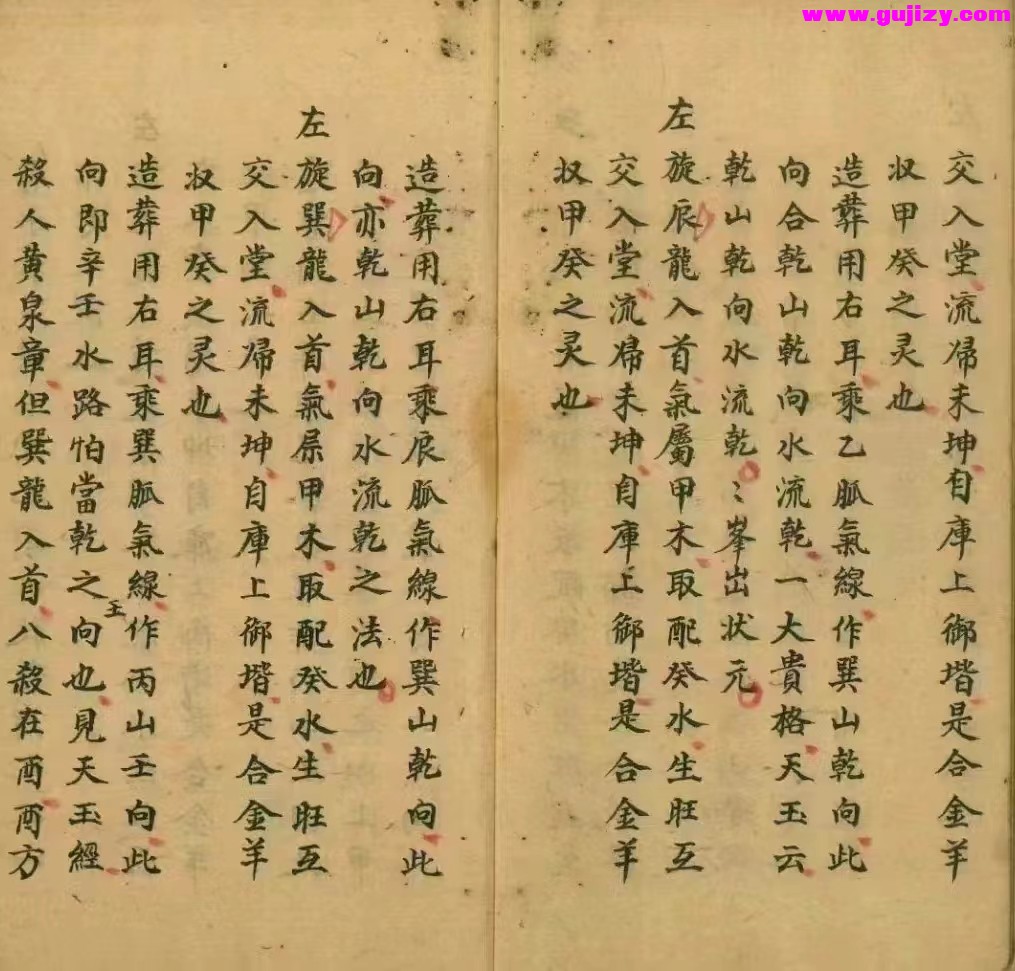 www.gujizy.com
交入堂流歸未坤自庫上御堦是合金羊
収甲癸之灵也
造葬用右耳乘乙脈氣線作巽山乾向此
向合乾山乾向水流乾一大貴格天玉云
乾山乾向水流乾〻峯出状元
左旋辰龍入首氣屬甲木取配癸水生旺互
交入堂流歸未坤自庫上御堦是合金羊
収甲癸之灵也
造葬用右耳乘辰脈氣線作巽山乾向此
向亦乾山乾向水流乾之法也
左旋巽龍入首氣屬甲木取配癸水生旺互
交入堂流歸未坤自庫上御堦是合金羊
収甲癸之灵也
造葬用右耳乘巽脈氣線作丙山壬向此
向即辛壬水路怕當乾之王向也見天玉經
殺人黄泉章但巽龍入首八殺在酉酉方